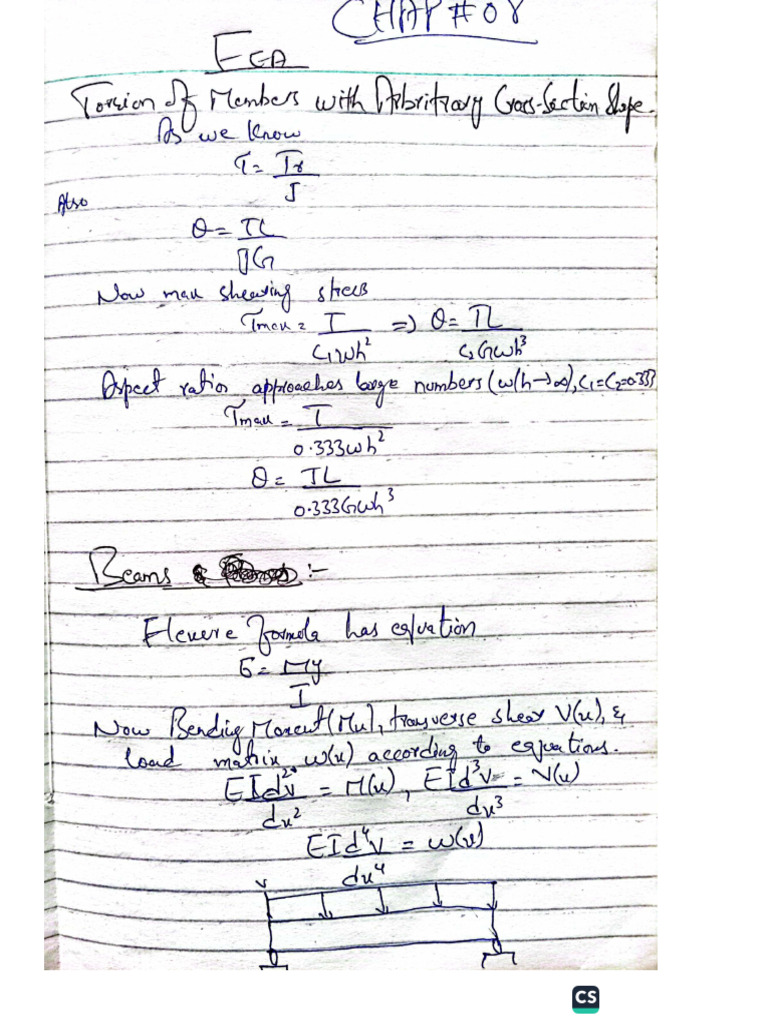 CHAP # 08
FEA
Torsion of Members with Arbritrary Cross-Section Shape.
As we know
τ = Tr/J
Also
θ = TL/JG
Now max shearing stress
τmax = T/c₁wh² => θ = TL/c₂Gwh³
Aspect ratio approaches large numbers (w/h→∞), c₁=c₂=0.333
τmax = T/0.333wh²
θ = TL/0.333Gwh³
Beams :-
Flexure formula has equation
σ = My/I
Now Bending Moment (Mx), transverse shear V(x), &
load matrix w(x) according to equations.
EId²v/dx² = M(x), EId³v/dx³ = V(x)
EId⁴v/dx⁴ = w(x)
v
CS